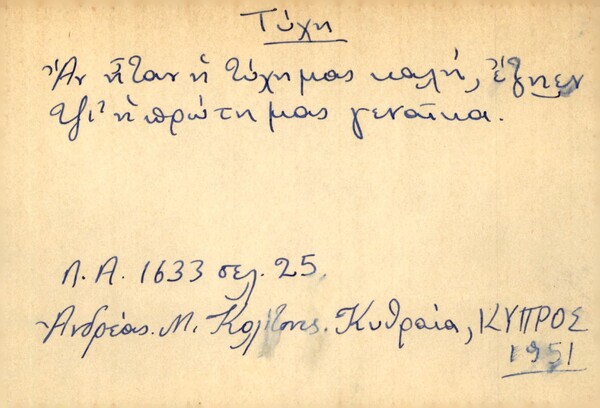 Τύχη
Ἄν ἦταν ἡ τύχη μας καλή, ἔζηεν
τζι' ἡ πρώτη μας γεναῖκα.
Λ. Α. 1633 σελ. 25.
Ἀνδρέας. Μ. Κυθραία, ΚΥΠΡΟΣ
1951